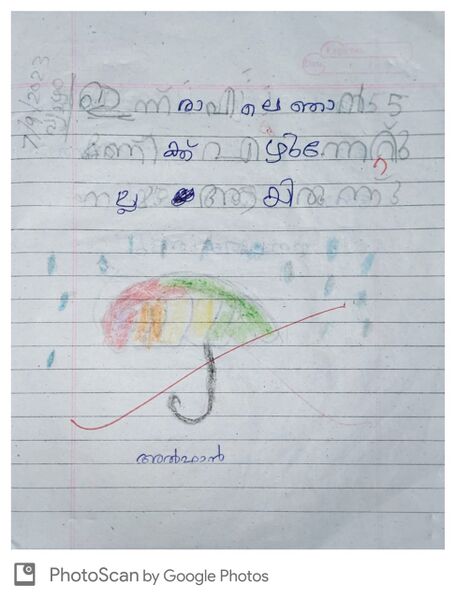 7/9/2023
വ്യാഴം
ഇന്ന് രാവിലെ ഞാൻ 5
മണിക്ക് എഴുന്നേറ്റു
നല്ല മഴ ആയിരുന്നു
അൽഫാൻ
PhotoScan by Google Photos